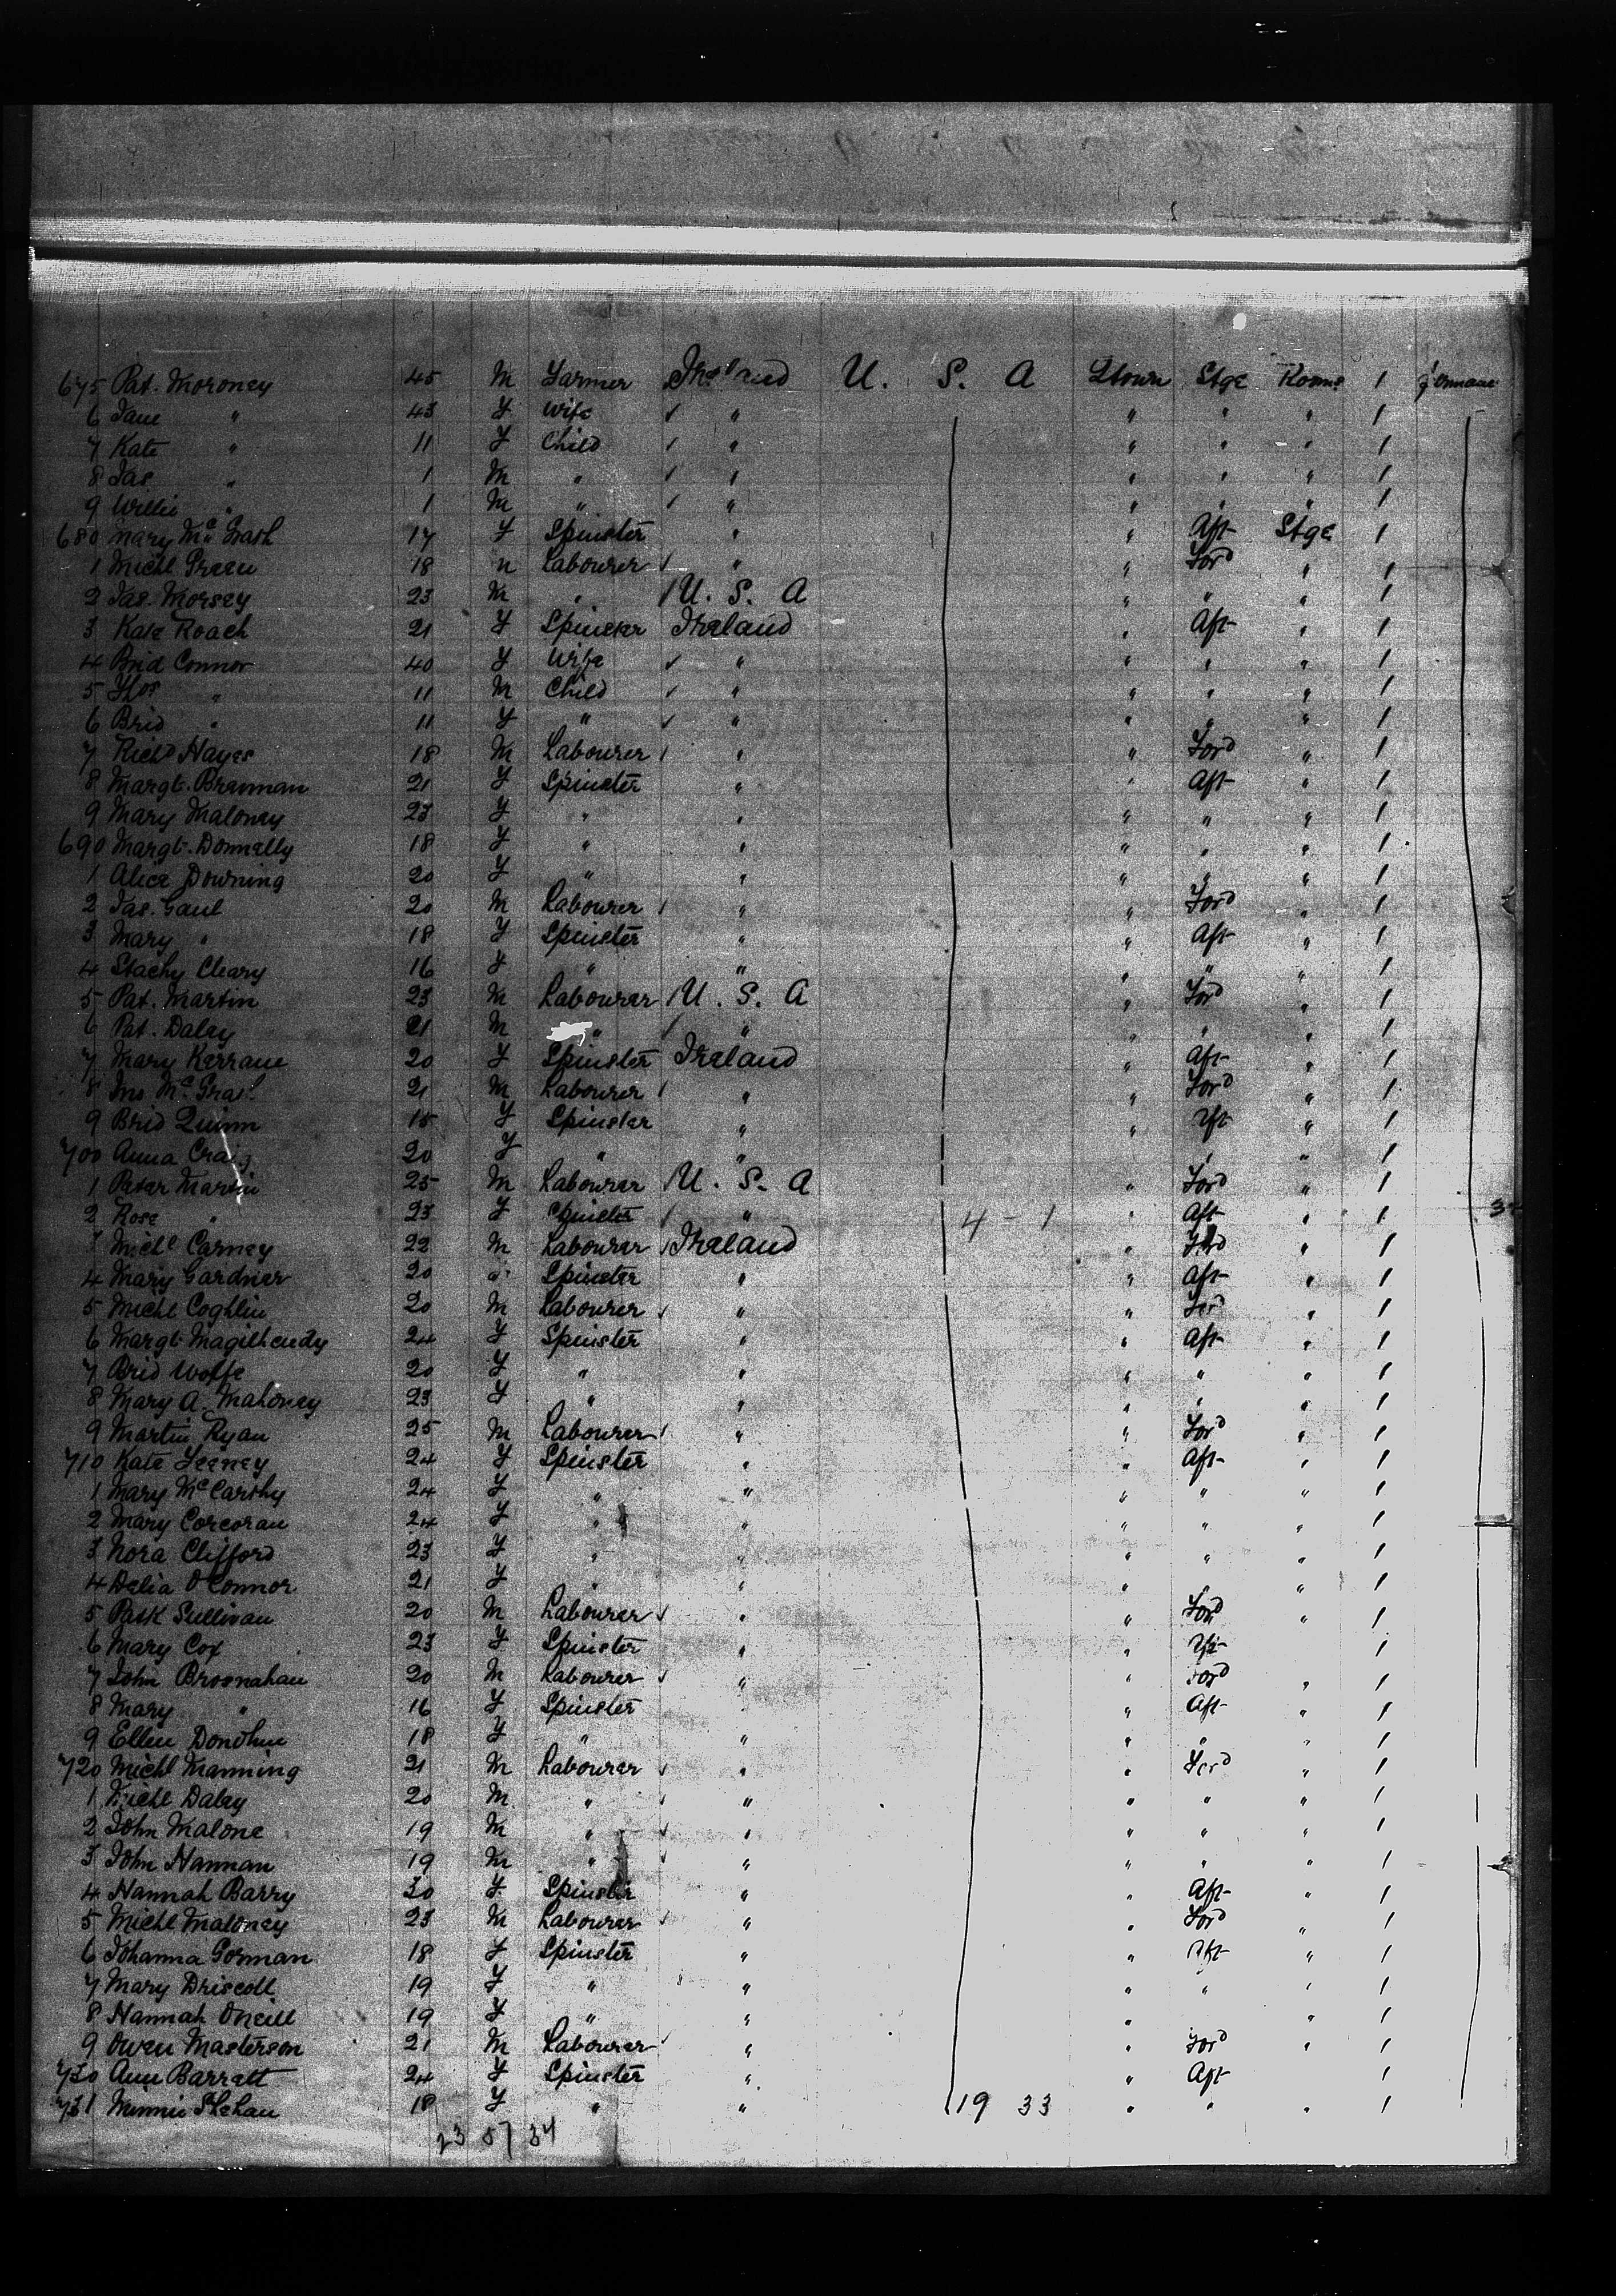 675 Pat. Moroney 45 M Farmer Ireland U. S. A Qtown Stge Rooms 1
6 Jane " 43 F Wife " " " " 1
7 Kate " 11 F Child " " " " 1
8 Jas " 1 M " " " " " 1
9 Willie " 1 M " " " " " 1
680 Mary Mc Grath 17 F Spinster " " Aft Stge 1
1 Michl Green 18 M Labourer " " Ford " 1
2 Jas. Morsey 23 M " U. S. A " " " 1
3 Kate Roach 21 F Spinster Ireland " Aft " 1
4 Brid Connor 40 F Wife " " " " 1
5 Thos " 11 M Child " " " " 1
6 Brid " 11 F " " " " " 1
7 Richd Hayes 18 M Labourer " " Ford " 1
8 Margt. Brannan 21 F Spinster " " Aft " 1
9 Mary Maloney 23 F " " " " " 1
690 Margt. Donnelly 18 F " " " " " 1
1 Alice Downing 20 F " " " " " 1
2 Jas. Gaul 20 M Labourer " " Ford " 1
3 Mary " 18 F Spinster " " Aft " 1
4 Stachy Cleary 16 F " " " " " 1
5 Pat. Martin 23 M Labourer U. S. A " Ford " 1
6 Pat. Daley 21 M " " " " " 1
7 Mary Kerrane 20 F Spinster Ireland " Aft " 1
8 Jno Mc Grath 21 M Labourer " " Ford " 1
9 Brid Quinn 18 F Spinster " " Aft " 1
700 Anna Craig 20 F " " " " " 1
1 Peter Martin 25 M Labourer U. S. A " Ford " 1
2 Rose " 23 F Spinster " 4 - 1 " Aft " 1
Michl Carney 22 M Labourer Ireland " Ford " 1
4 Mary Gardner 20 " Spinster " " Aft " 1
5 Michl Coghlin 20 M Labourer " " Ford " 1
6 Margt Magilhendy 24 F Spinster " " Aft " 1
7 Brid Wolfe 20 F " " " " " 1
8 Mary A. Mahoney 23 F " " " " " 1
9 Martin Ryan 25 M Labourer " " Ford " 1
710 Kate Feeney 24 F Spinster " " Aft " 1
1 Mary McCarthy 24 F " " " " " 1
2 Mary Corcoran 24 F " " " " " 1
3 Nora Clifford 23 F " " " " " 1
4 Delia O'Connor 21 F " " " " " 1
5 Patk Sullivan 20 M Labourer " " Ford " 1
6 Mary Cox 23 F Spinster " " Aft 1
7 John Brosnahan 20 M Labourer " " Ford " 1
8 Mary " 16 F Spinster " " Aft " 1
9 Ellen Donohue 18 F " " " " " 1
720 Michl Manning 21 M Labourer " " Ford " 1
1 Michl Daley 20 M " " " " " 1
2 John Malone 19 M " " " " " 1
3 John Hannan 19 M " " " " " 1
4 Hannah Barry 30 F Spinster " " Aft " 1
5 Michl Maloney 23 M Labourer " " Ford " 1
6 Johanna Gorman 18 F Spinster " " Aft " 1
7 Mary Driscoll 19 F " " " " " 1
8 Hannah Oneill 19 F " " " " 1
9 Owen Masterson 21 M Labourer " " Ford " 1
730 Ann Barratt 24 F Spinster " " Aft 1
731 Minnie Shehan 18 F " " 19 33 " " " 1
23 57 34